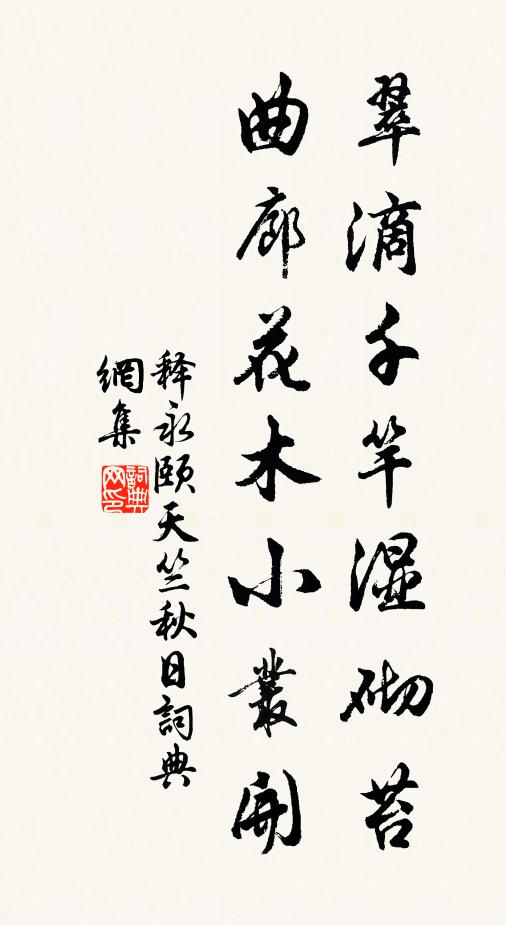 翠滴千竿湿砌苔
曲廊花木小叢開
释永颐天竺秋日詞典
網集
詞典網印